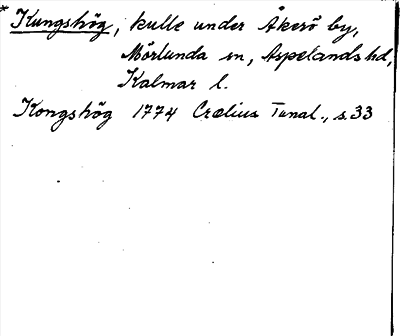 * Kungshög, kulle under Åkerö by,
Mörlunda sn, Aspelands hd,
Kalmar l.
Kongshög 1774 Crælius Tunal., s. 33